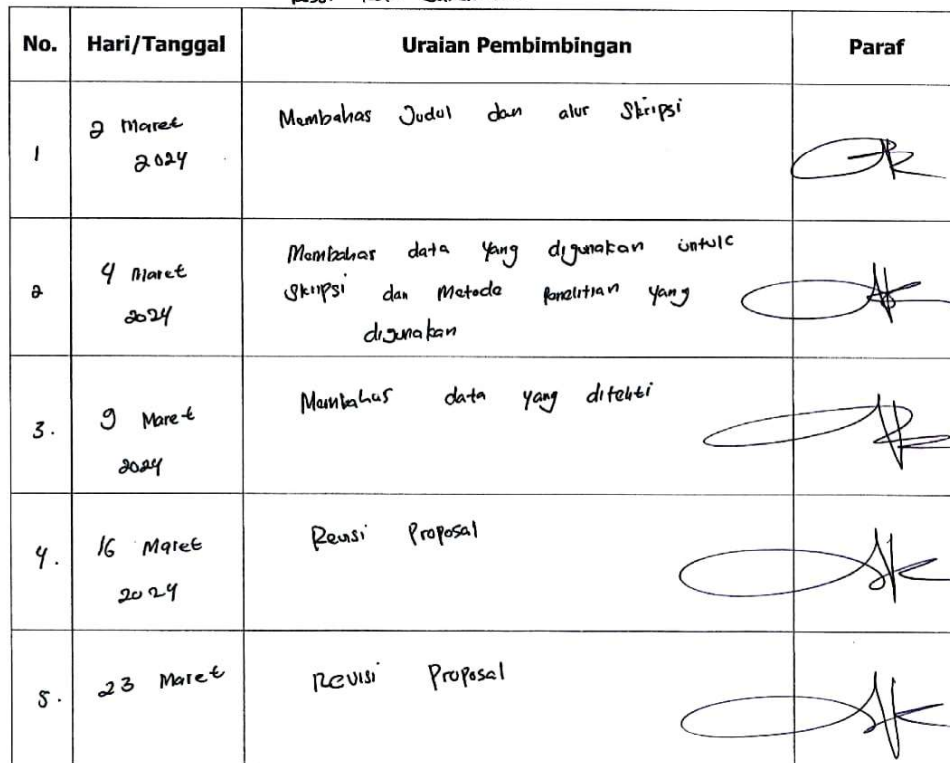 No. Hari/Tanggal Uraian Pembimbingan Paraf
1 2 Maret Membahas Judul dan alur Skripsi
2024
2 4 Maret Membahas data yang digunakan untuk
2024 Skripsi dan Metode Penelitian yang
digunakan
3. 9 Maret Membahas data yang diteliti
2024
4. 16 Maret Revisi Proposal
2024
5. 23 Maret Revisi Proposal